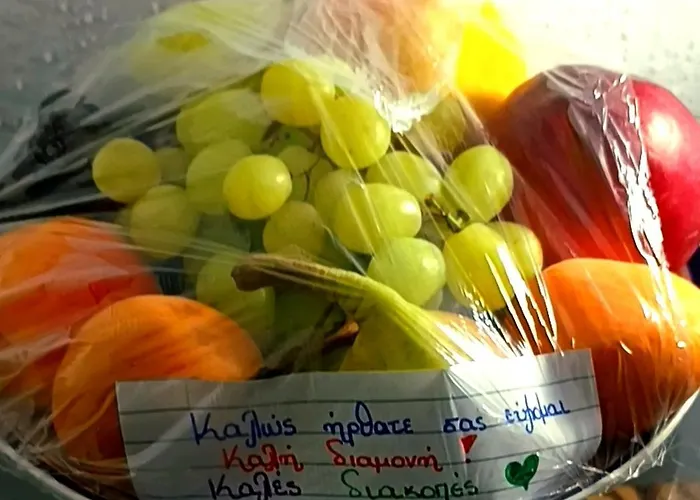 Καλώς ήρθατε σας εύχομαι
Καλή διαμονή !
Καλές διακοπές